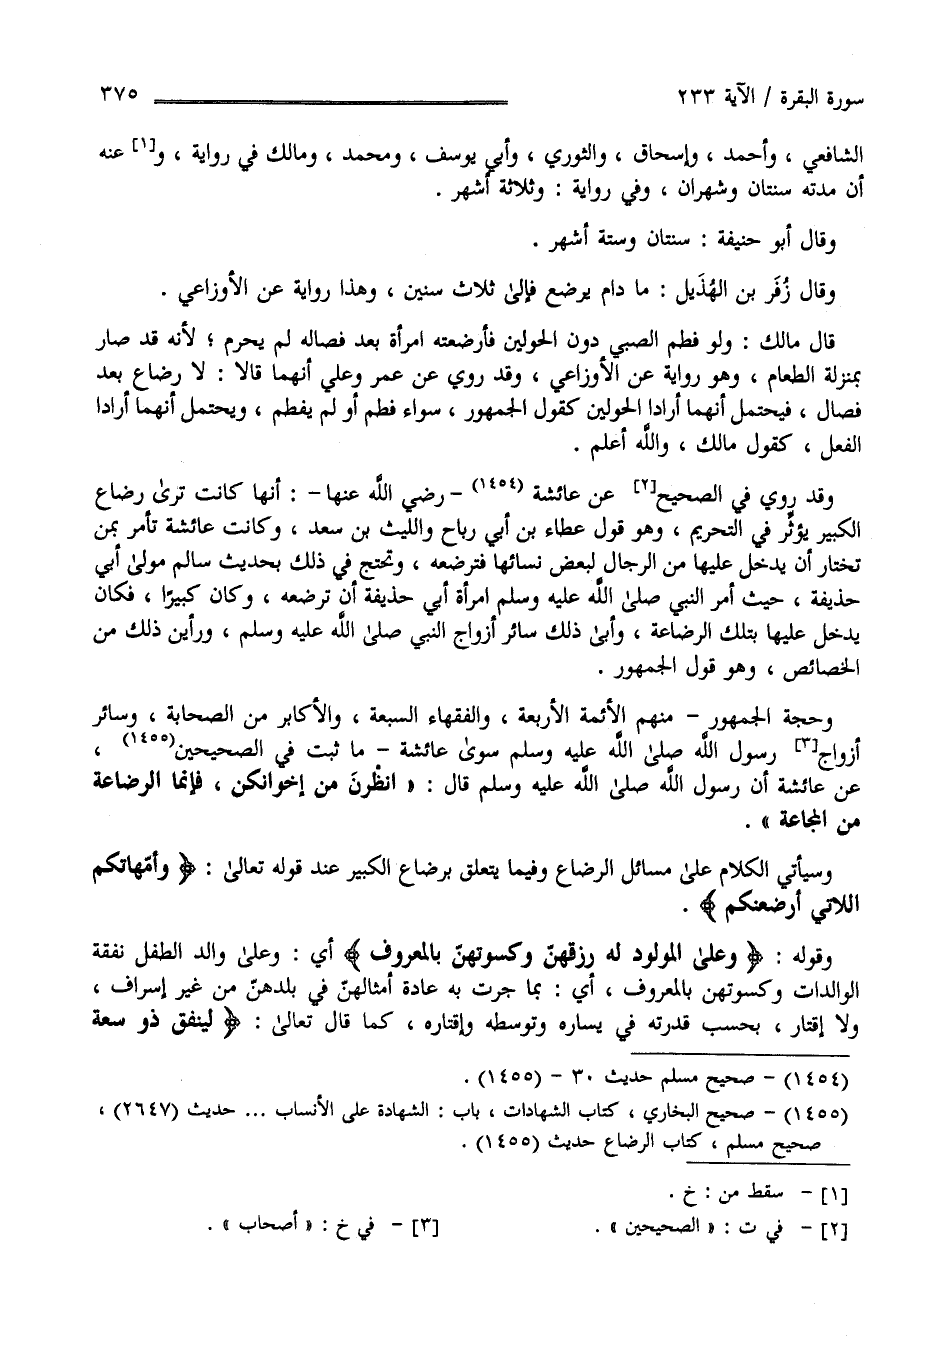 سورة البقرة / الآية ٢٣٣ ٣٧٥
الشافعي ، وأحمد ، وإسحاق ، والثوري ، وأبي يوسف ، ومحمد ، ومالك في رواية ، و[١] عنه
أن مدته سنتان وشهران ، وفي رواية : وثلاثة أشهر .
وقال أبو حنيفة : سنتان وستة أشهر .
وقال زُفَر بن الهُذَيل : ما دام يرضع فإلىٰ ثلاث سنين ، وهذا رواية عن الأوزاعي .
قال مالك : ولو فطم الصبي دون الحولين فأرضعته امرأة بعد فصاله لم يحرم ؛ لأنه قد صار
بمنزلة الطعام ، وهو رواية عن الأوزاعي ، وقد روي عن عمر وعلي أنهما قالا : لا رضاع بعد
فصال ، فيحتمل أنهما أرادا الحولين كقول الجمهور ، سواء فطم أو لم يفطم ، ويحتمل أنهما أرادا
الفعل ، كقول مالك ، واللَّه أعلم .
وقد روي في الصحيح[٢] عن عائشة (١٤٥٤) - رضي اللَّه عنها- : أنها كانت ترىٰ رضاع
الكبير يؤثِّر في التحريم ، وهو قول عطاء بن أبي رباح والليث بن سعد ، وكانت عائشة تأمر بمن
تختار أن يدخل عليها من الرجال لبعض نسائها فترضعه ، وتحتج في ذلك بحديث سالم مولىٰ أبي
حذيفة ، حيث أمر النبي صلىٰ اللَّه عليه وسلم امرأة أبي حذيفة أن ترضعه ، وكان كبيرًا ، فكان
يدخل عليها بتلك الرضاعة ، وأبىٰ ذلك سائر أزواج النبي صلىٰ اللَّه عليه وسلم ، ورأين ذلك من
الخصائص ، وهو قول الجمهور .
وحجة الجمهور - منهم الأئمة الأربعة ، والفقهاء السبعة ، والأكابر من الصحابة ، وسائر
أزواج[٣] رسول اللَّه صلىٰ اللَّه عليه وسلم سوىٰ عائشة - ما ثبت في الصحيحين(١٤٥٥) ،
عن عائشة أن رسول اللَّه صلىٰ اللَّه عليه وسلم قال : « انظُرنَ من إخوانكن ، فإنما الرضاعة
من المجاعة » .
وسيأتي الكلام علىٰ مسائل الرضاع وفيما يتعلق برضاع الكبير عند قوله تعالىٰ : ﴿ وأمّهاتكم
اللاتي أرضعنكم ﴾ .
وقوله : ﴿ وعلىٰ المولود له رزقهنّ وكسوتهنّ بالمعروف ﴾ أي : وعلىٰ والد الطفل نفقة
الوالدات وكسوتهن بالمعروف ، أي : بما جرت به عادة أمثالهنّ في بلدهنّ من غير إسراف ،
ولا إقتار ، بحسب قدرته في يساره وتوسطه وإقتاره ، كما قال تعالىٰ : ﴿ لينفق ذو سعة
(١٤٥٤) - صحيح مسلم حديث ٣٠ - (١٤٥٥) .
(١٤٥٥) - صحيح البخاري ، كتاب الشهادات ، باب : الشهادة على الأنساب ... حديث (٢٦٤٧) ،
صحيح مسلم ، كتاب الرضاع حديث (١٤٥٥) .
[١] - سقط من : خ .
[٢] - في ت : « الصحيحين » . [٣] - في خ : « أصحاب » .